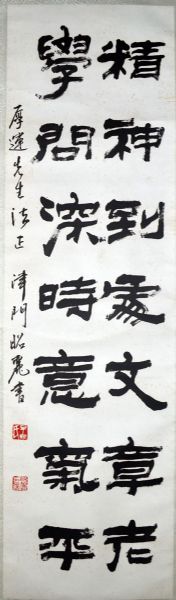 精神到處文章老
學問深時意氣平
厚蓮先生法正 津門昭麗書